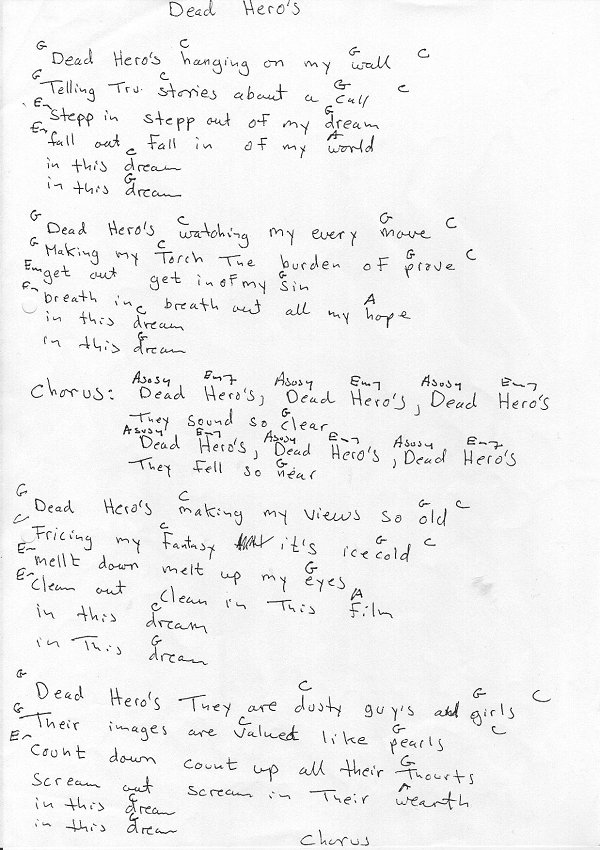 Dead Hero's
G C G C
Dead Hero's hanging on my wall
G C G C
Telling Tru. stories about a Call
Em G
Stepp in stepp out of my dream
Em A
fall out fall in of my world
C
in this dream
G
in this dream
G C G C
Dead Hero's watching my every move
G C G C
Making my Torch The burden of prove
Em G
get out get in of my Sin
Em A
breath in breath out all my hope
C
in this dream
G
in this dream
Asus4 Em7 Asus4 Em7 Asus4 Em7
Chorus: Dead Hero's, Dead Hero's, Dead Hero's
G
They sound so clear
Asus4 Em7 Asus4 Em7 Asus4 Em7
Dead Hero's, Dead Hero's, Dead Hero's
G
They fell so near
G C G C
Dead Hero's making my views so old
C C G C
Fricing my Fantasy it's ice cold
Em G
mellt down melt up my eyes
Em A
Clean out Clean in This Film
C
in this dream
G
in This dream
G C G C
Dead Hero's They are dusty guy's and girls
G C G C
Their images are valued like pearls
Em G
Count down count up all their Thourts
A
Scream out scream in Their wearth
C
in this dream
G
in this dream
Chorus